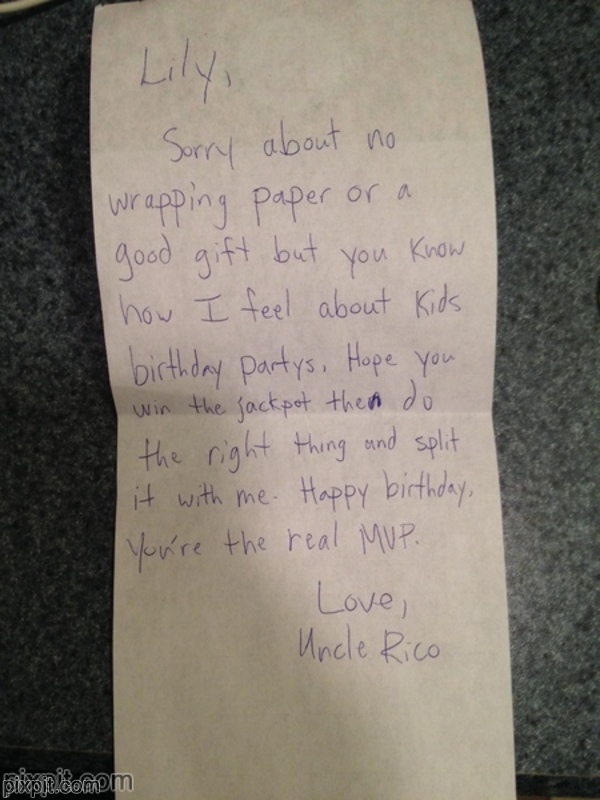 Lily,
Sorry about no
wrapping paper or a
good gift but you know
how I feel about kids
birthday partys. Hope you
win the jackpot then do
the right thing and split
it with me. Happy birthday,
You're the real MVP.
Love,
Uncle Rico
pixpit.com
pixpit.com